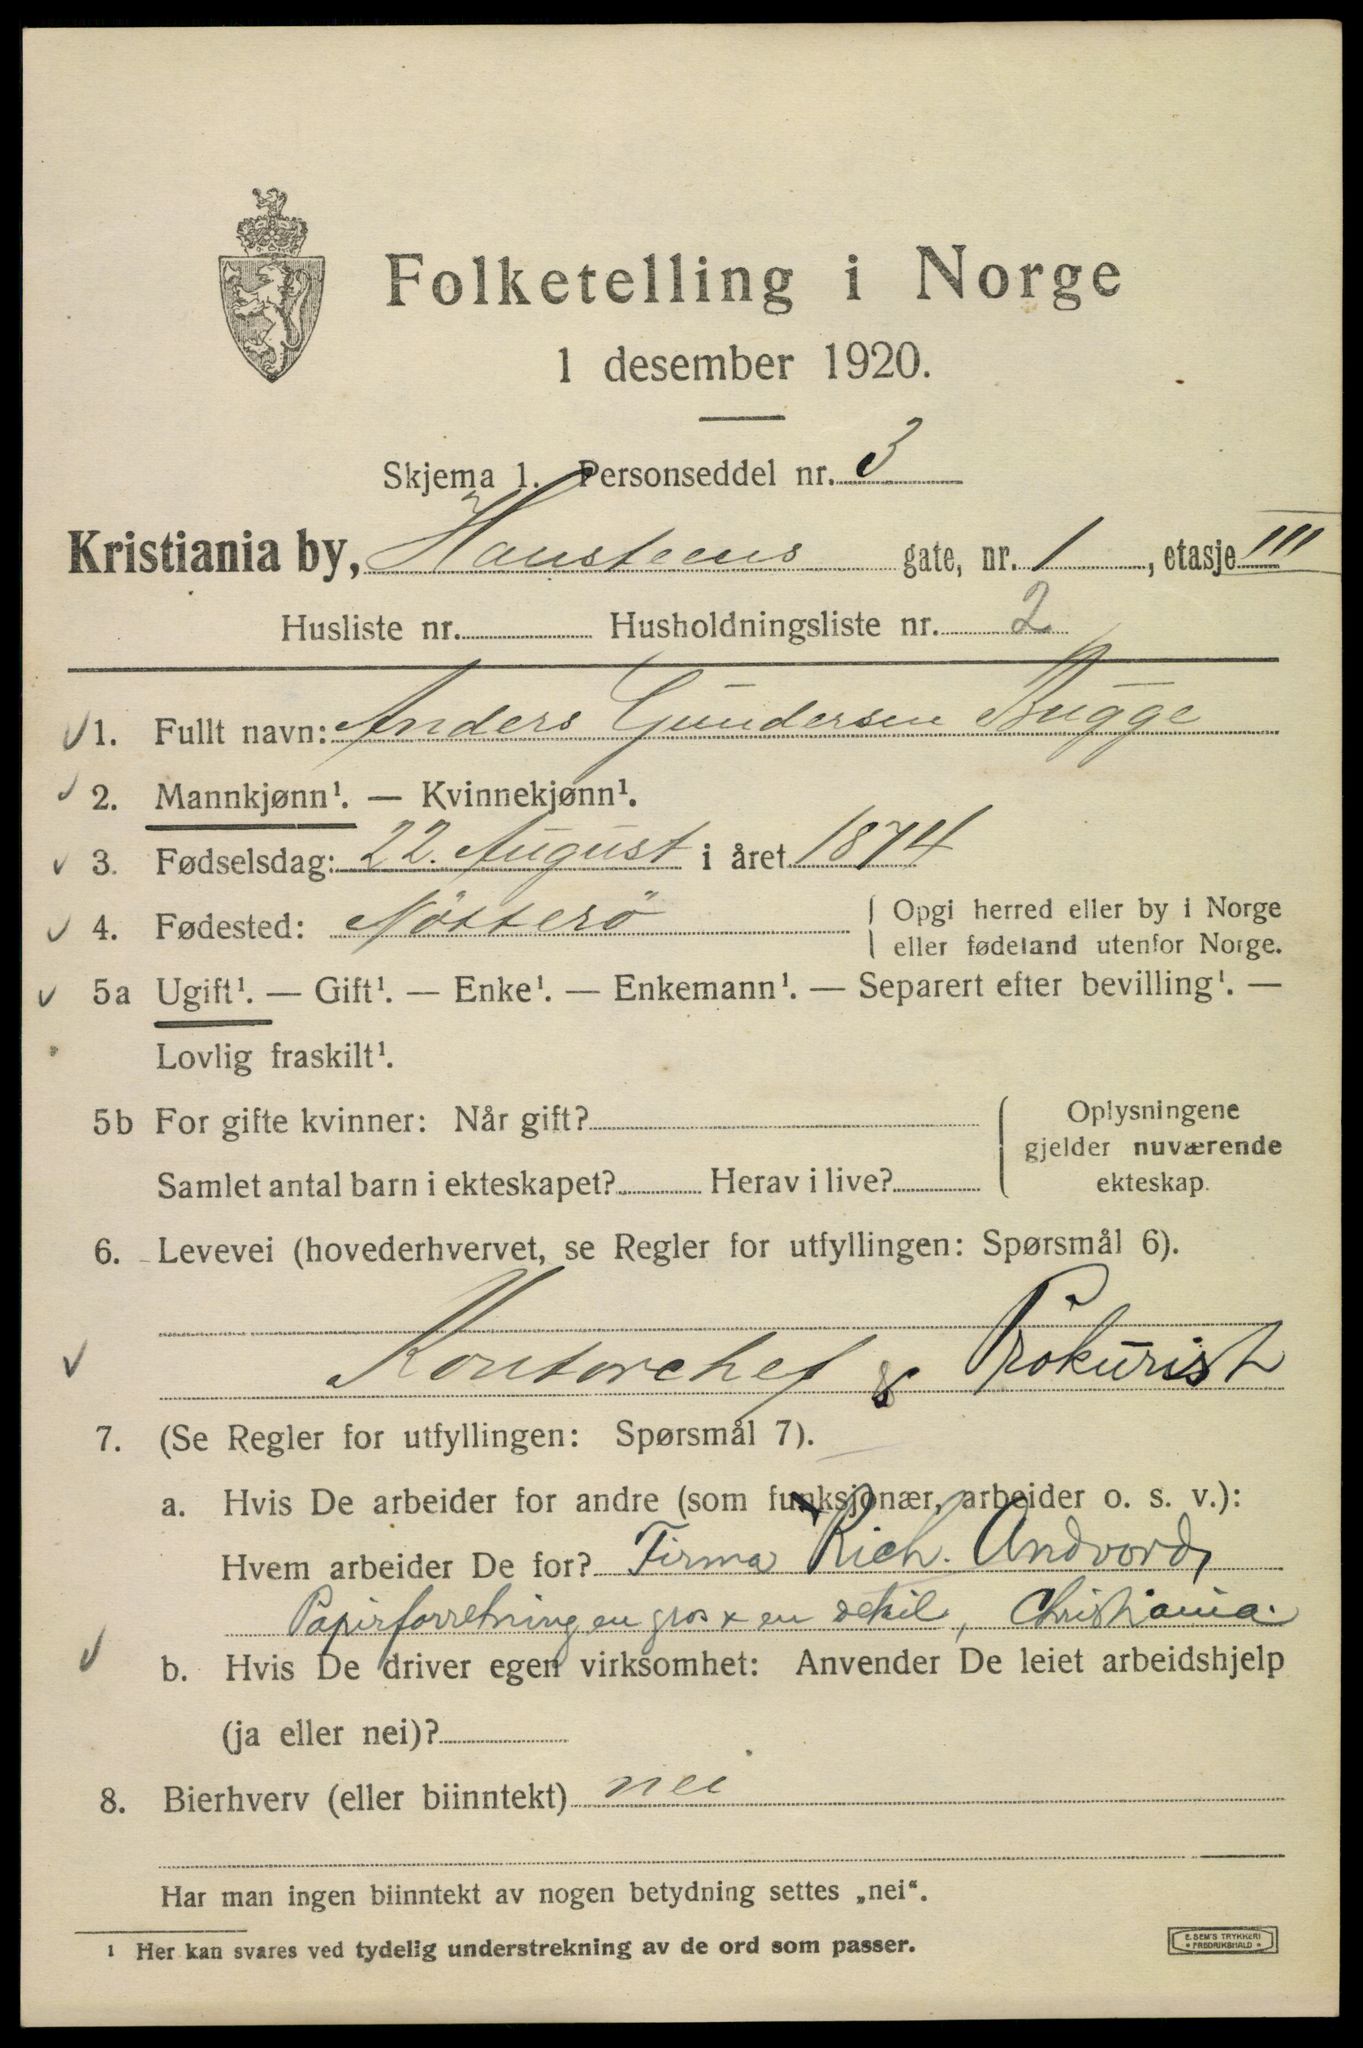 Folketelling i Norge
1 desember 1920.
Skjema 1. Personseddel nr. 3
Kristiania by, Hansteens gate, nr. 1, etasje III
Husliste nr. Husholdningsliste nr. 2
1. Fullt navn: Anders Gundersen Bugge
2. Mannkjønn¹. — Kvinnekjønn¹.
3. Fødselsdag: 22. August i året 1874
4. Fødested: Nötterö { Opgi herred eller by i Norge
eller fødeland utenfor Norge.
5a Ugift¹. — Gift¹. — Enke¹. — Enkemann¹. — Separert efter bevilling¹. —
Lovlig fraskilt¹.
5b For gifte kvinner: Når gift? Oplysningene
gjelder nuværende
Samlet antal barn i ekteskapet? Herav i live? ekteskap.
6. Levevei (hovederhvervet, se Regler for utfyllingen: Spørsmål 6).
Kontorchef & Prokurist
7. (Se Regler for utfyllingen: Spørsmål 7).
a. Hvis De arbeider for andre (som funksjonær, arbeider o. s. v.):
Hvem arbeider De for? Firma Rich. Andvord,
Papirforretning en gros & en detail, Christiania.
b. Hvis De driver egen virksomhet: Anvender De leiet arbeidshjelp
(ja eller nei)?
8. Bierhverv (eller biinntekt) nei
Har man ingen biinntekt av nogen betydning settes „nei“.
¹ Her kan svares ved tydelig understrekning av de ord som passer.
E. SEM'S TRYKKERI
• FREDRIKSHALD •